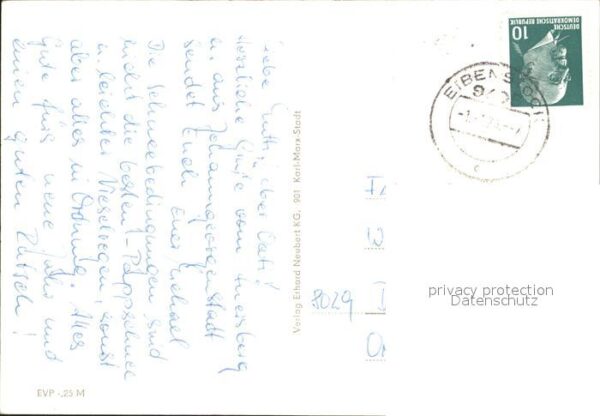 Liebe Ruth, lieber Vati!
Herzliche Grüße vom Auersberg
u. aus Johanngeorgenstadt
sendet Euch Euer Michael
Die Schneebedingungen sind
nicht die besten! - Pappschnee
u. leichter Nieselregen, sonst
aber alles in Ordnung. Alles
Gute fürs neue Jahr und
einen guten Rutsch!
EVP -.25 M
Verlag Erhard Neubert KG, 901 Karl-Marx-Stadt
8029
DEUTSCHE
DEMOKRATISCHE REPUBLIK
10
EIBENSTOCK
privacy protection
Datenschutz